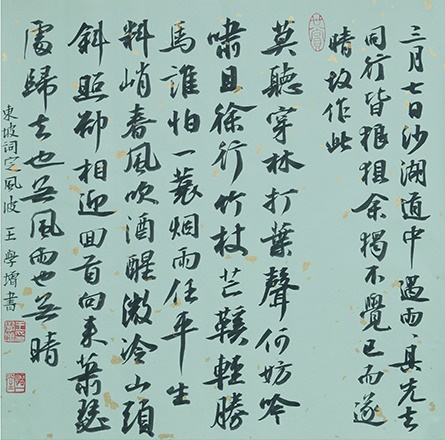 三月七日沙湖道中遇雨〻具先去
同行皆狼狽余獨不覺已而遂
晴故作此
莫聽穿林打葉聲何妨吟
嘯且徐行竹杖芒鞋輕勝
馬誰怕一蓑烟雨任平生
料峭春風吹酒醒微冷山頭
斜照卻相迎回首向來蕭瑟
處歸去也无風雨也无晴
東坡詞定風波 王學增書